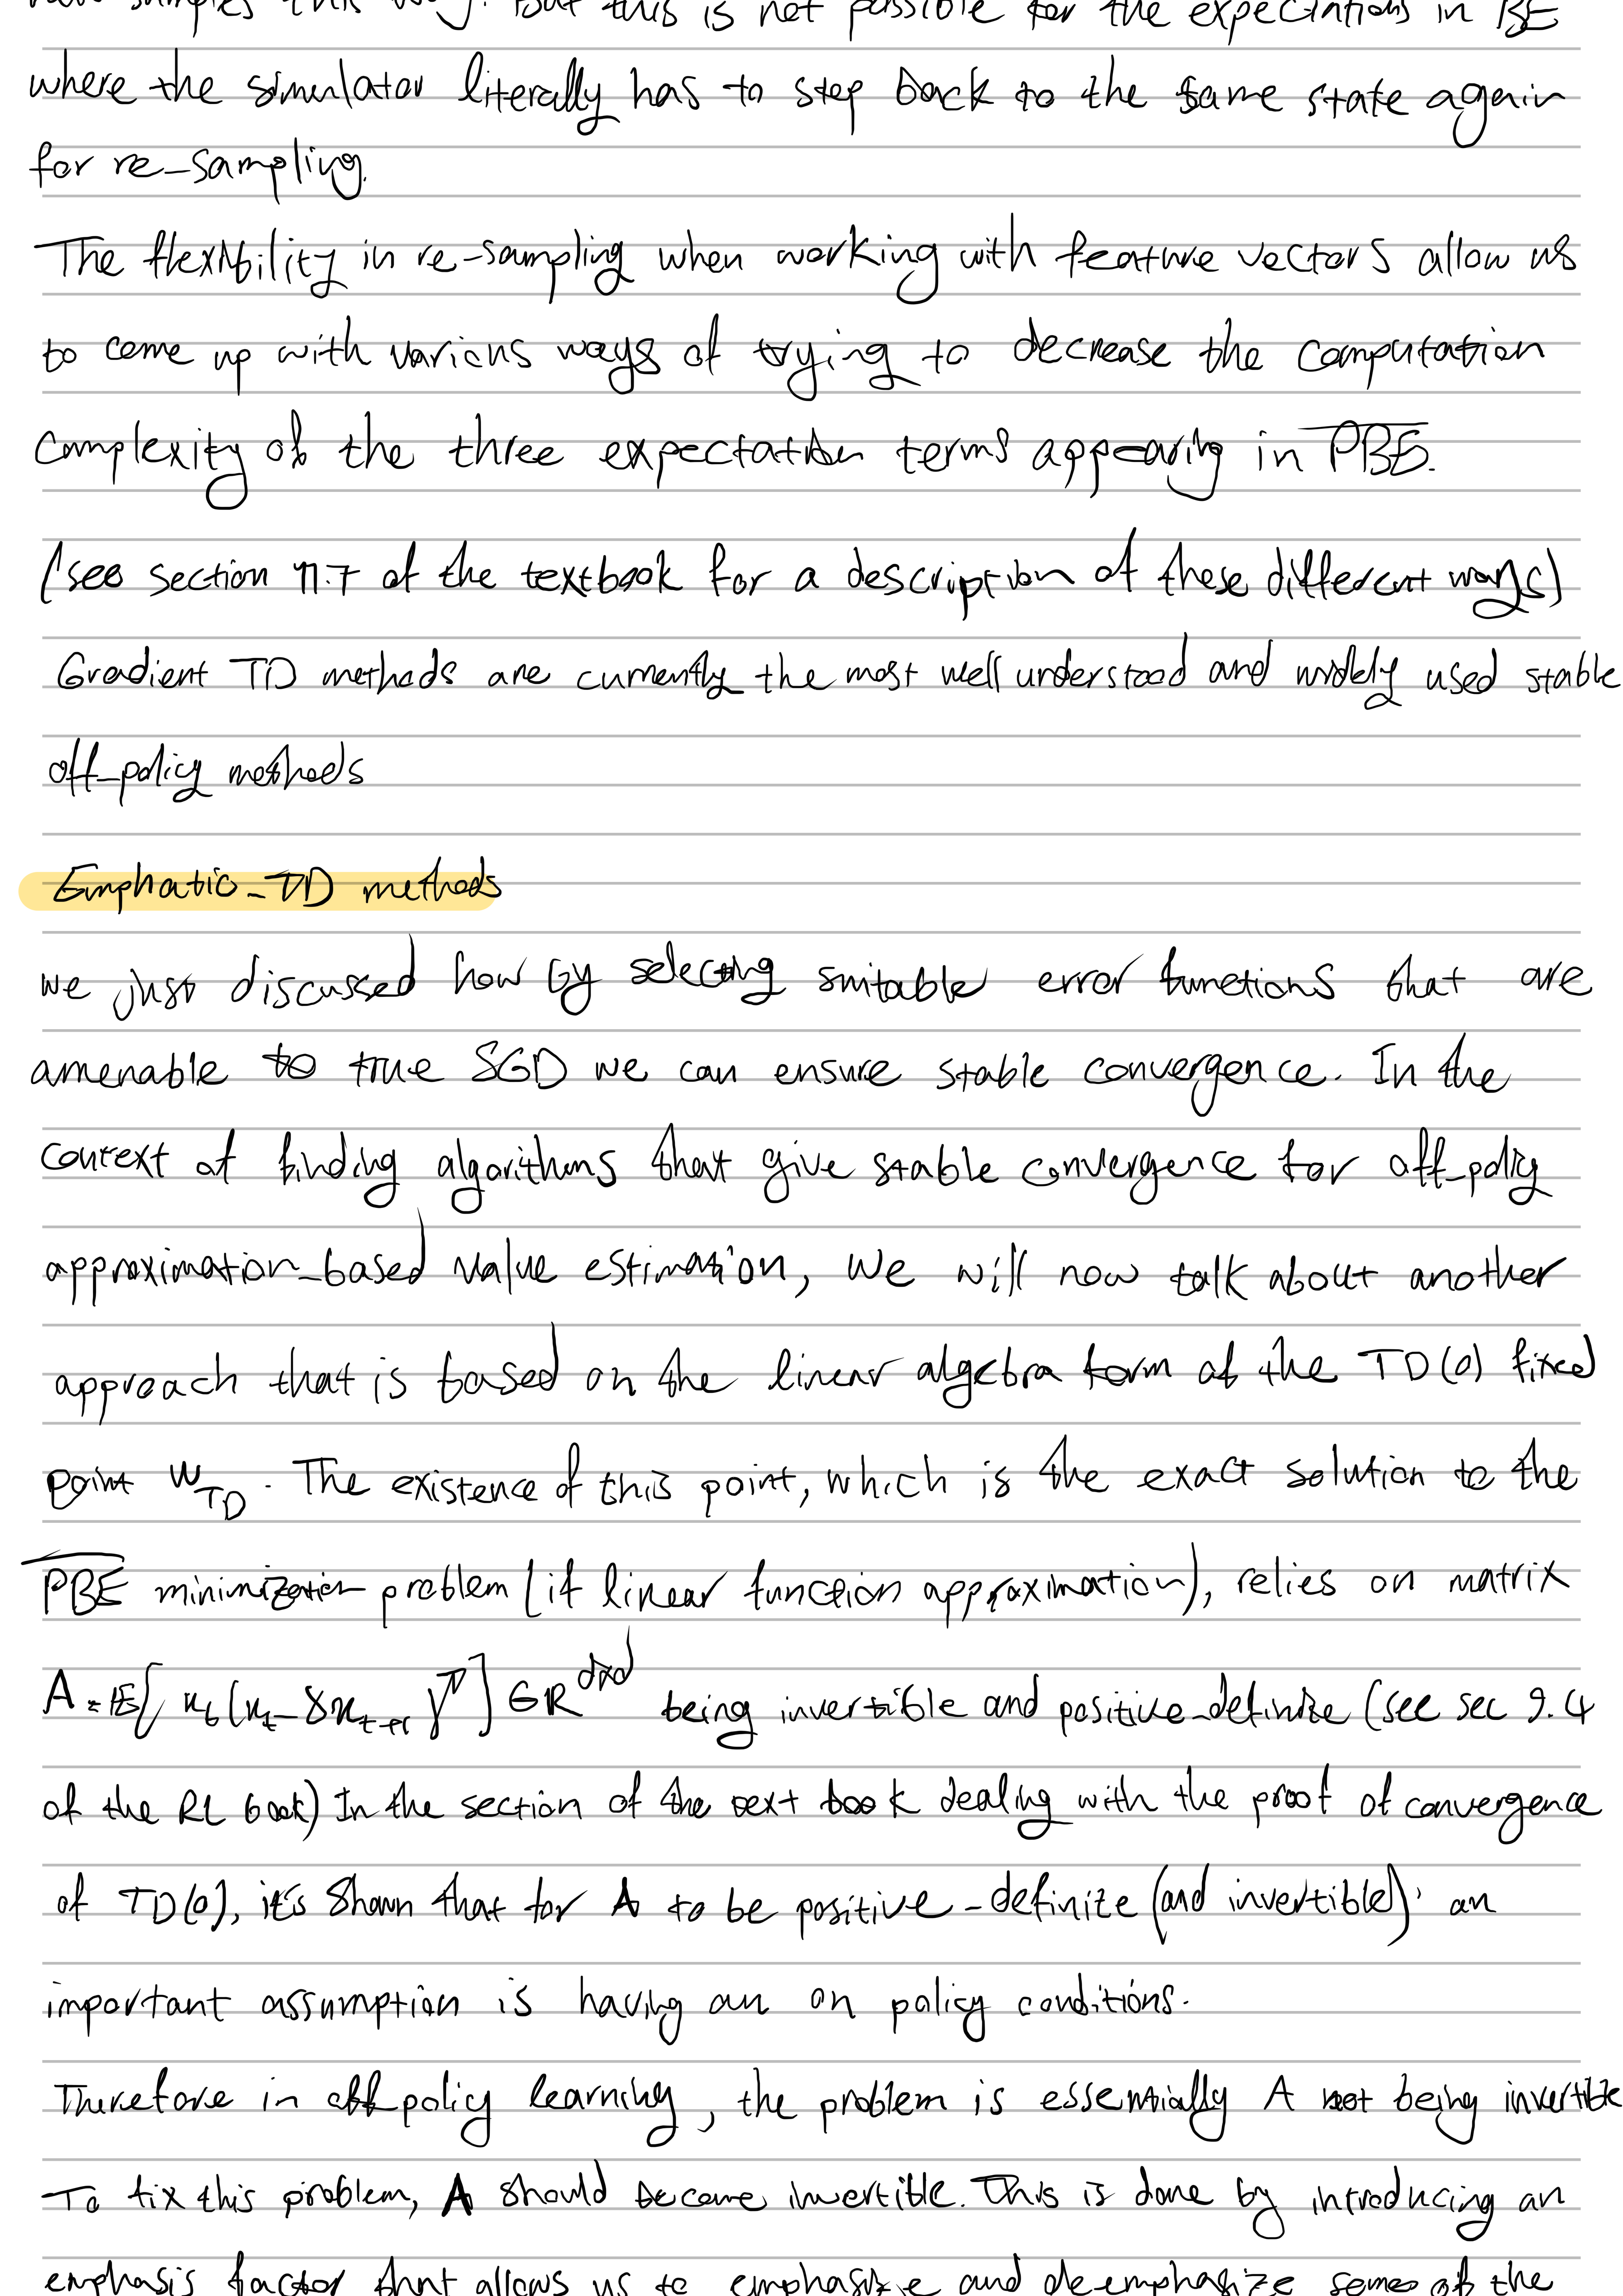 samples this way. But this is not possible for the expectations in B̅E̅
where the simulator literally has to step back to the same state again
for re-sampling.
The flexibility in re-sampling when working with feature vectors allow us
to come up with various ways of trying to decrease the computation
complexity of the three expectation terms appearing in P̅B̅E̅.
(see section 11.7 of the textbook for a description of these different ways)
Gradient TD methods are currently the most well understood and widely used stable
off-policy methods
Emphatic-TD methods
we just discussed how by selecting suitable error functions that are
amenable to true SGD we can ensure stable convergence. In the
context of finding algorithms that give stable convergence for off-policy
approximation-based value estimation, we will now talk about another
approach that is based on the linear algebra form of the TD(0) fixed
point w_TD. The existence of this point, which is the exact solution to the
P̅B̅E̅ minimization problem (if linear function approximation), relies on matrix
A = E[x_t(x_t - γx_{t+1})^T] ∈ R^{d×d} being invertible and positive-definite (see sec 9.4
of the RL book) In the section of the text book dealing with the proof of convergence
of TD(0), it's shown that for A to be positive-definite (and invertible), an
important assumption is having an on policy conditions.
Therefore in off-policy learning, the problem is essentially A not being invertible
To fix this problem, A should become invertible. This is done by introducing an
emphasis factor that allows us to emphasize and de-emphasize some of the